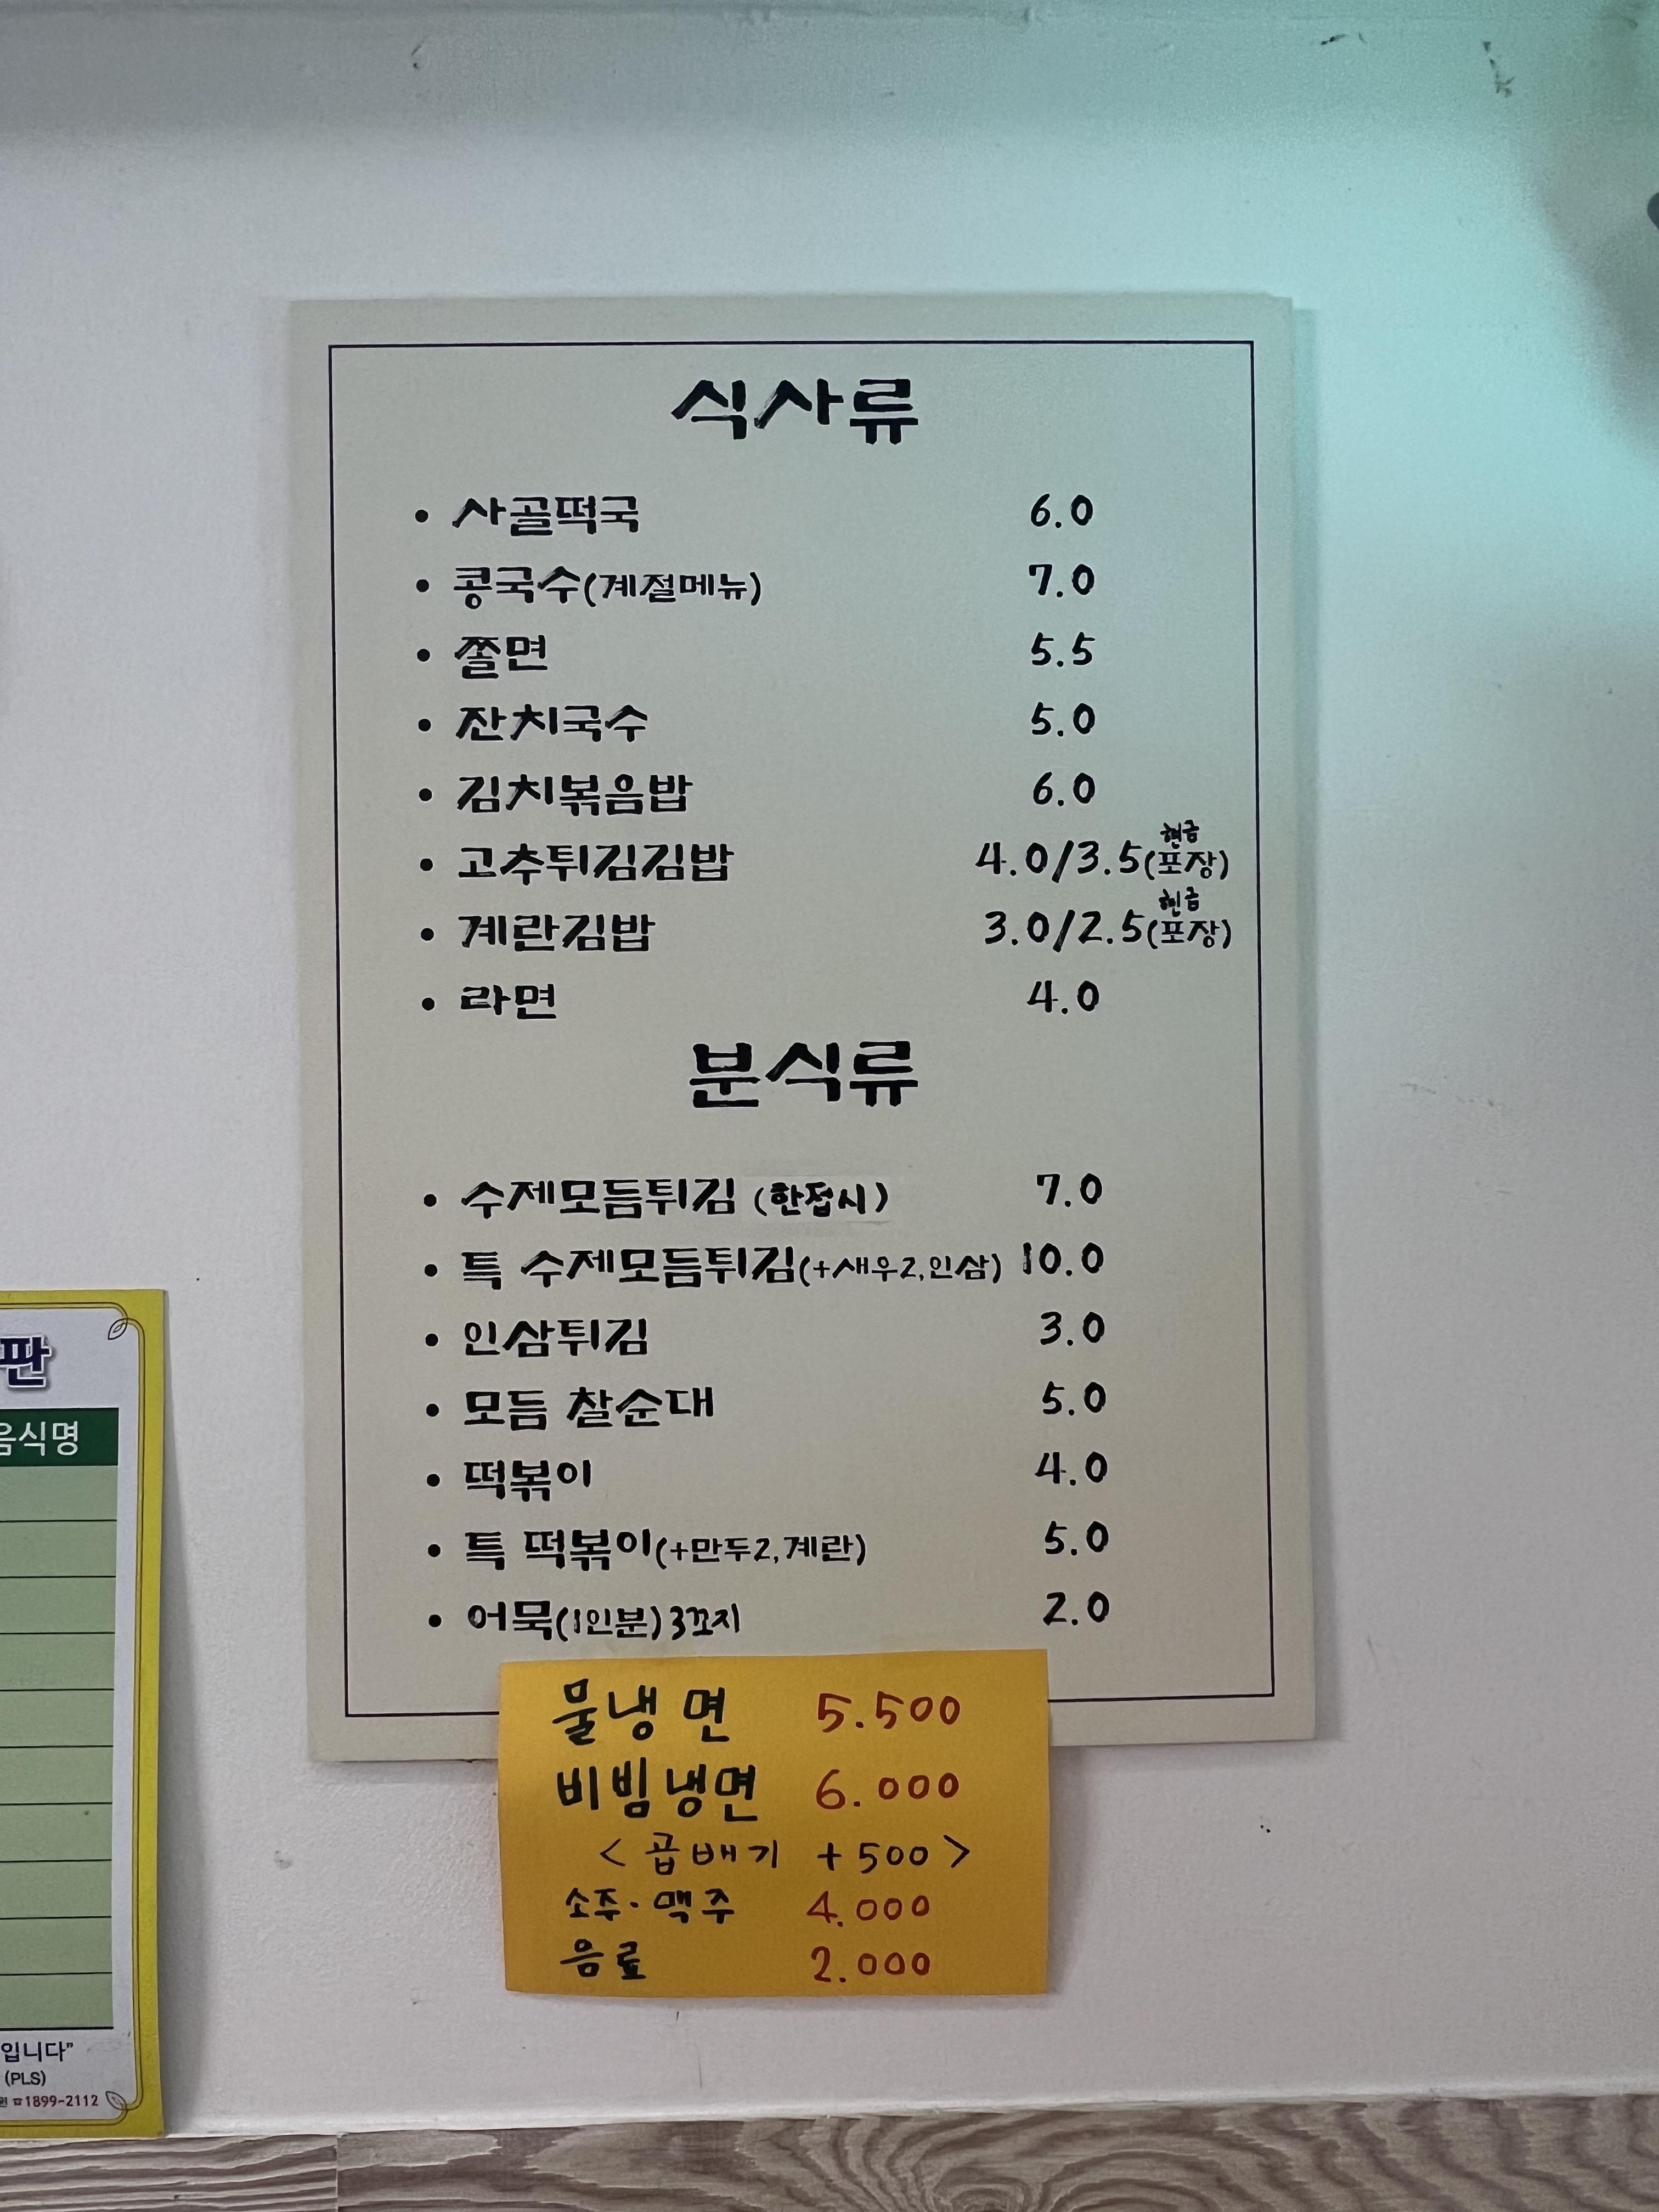 식사류
• 사골떡국 6.0
• 콩국수(계절메뉴) 7.0
• 쫄면 5.5
• 잔치국수 5.0
• 김치볶음밥 6.0
현금
• 고추튀김김밥 4.0/3.5(포장)
현금
• 계란김밥 3.0/2.5(포장)
• 라면 4.0
분식류
• 수제모듬튀김 (한접시) 7.0
• 특 수제모듬튀김(+새우2,인삼) 10.0
• 인삼튀김 3.0
• 모듬 찰순대 5.0
• 떡볶이 4.0
• 특 떡볶이(+만두2,계란) 5.0
• 어묵(1인분)3꼬지 2.0
물냉면 5.500
비빔냉면 6.000
<곱배기 +500>
소주·맥주 4.000
음료 2.000
판
음식명
입니다"
(PLS)
원 ☎1899-2112